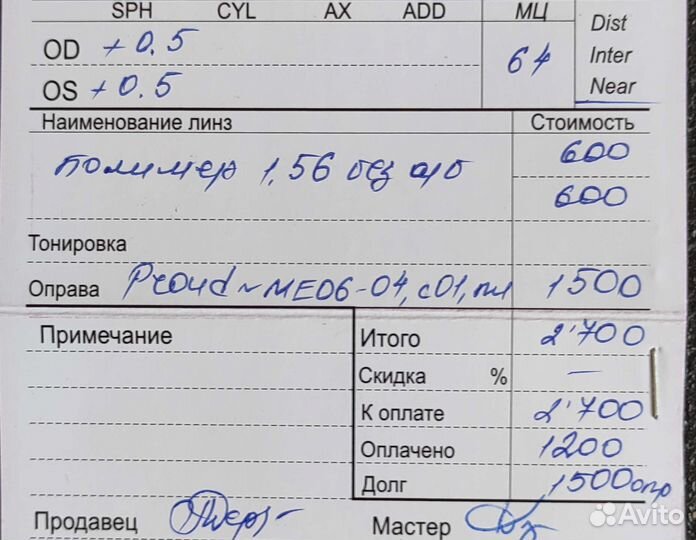 SPH CYL AX ADD МЦ Dist
OD +0.5 64 Inter
OS +0.5 Near
Наименование линз Стоимость
полимер 1,56 без а/о 600
600
Тонировка
Оправа Proud ~ ME06-04, c01, пл 1500
Примечание Итого 2'700
Скидка % —
К оплате 2'700
Оплачено 1200
Долг 1500 опр
Продавец Мастер
Avito